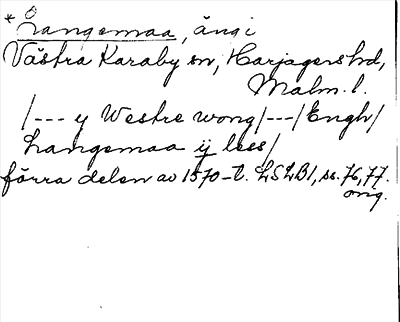 * Långemaa, äng i
Västra Karaby sn, Harjagers hd,
Malm. l.
/--- y Westre wong/---/Engh/
Langemaa ij less/
förra delen av 1570-t. LSLB1, ss. 76, 77.
orig.